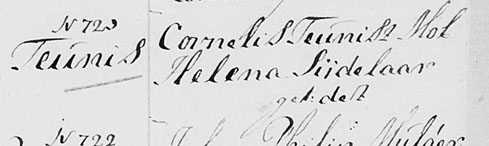 N 723
Teunis
Cornelis Teunisz Mol
Helena Sijdelaar
get: det
N 722
Philip Mulder